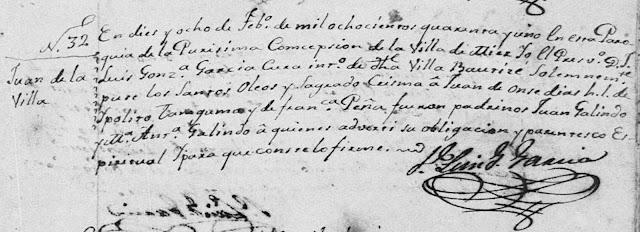 N. 32
Juan de la
Villa
En dies y ocho de Febo. de mil ochocientos quarenta y uno En esta Paro
quia de la Purisima Comcepsion de la Villa de Mier Yo El Presvo. D. J.
Luis Gonza. Garcia Cura into. de dha Villa Bautize Solemnemte.
puse los Santos Oleos y Sagrado Crisma â Juan de onse dias h. l. de
Ypolito Taraguma y de franca. Peña fueron padrinos Juan Galindo
y Ma. Anta. Galindo â quienes advertí su obligacion y parentesco Es
piritual Y para que conste lo firmé.
J. Luis G. Garcia